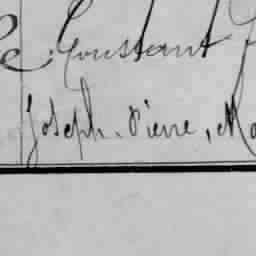 Constant
Joseph, Pierre, Ma